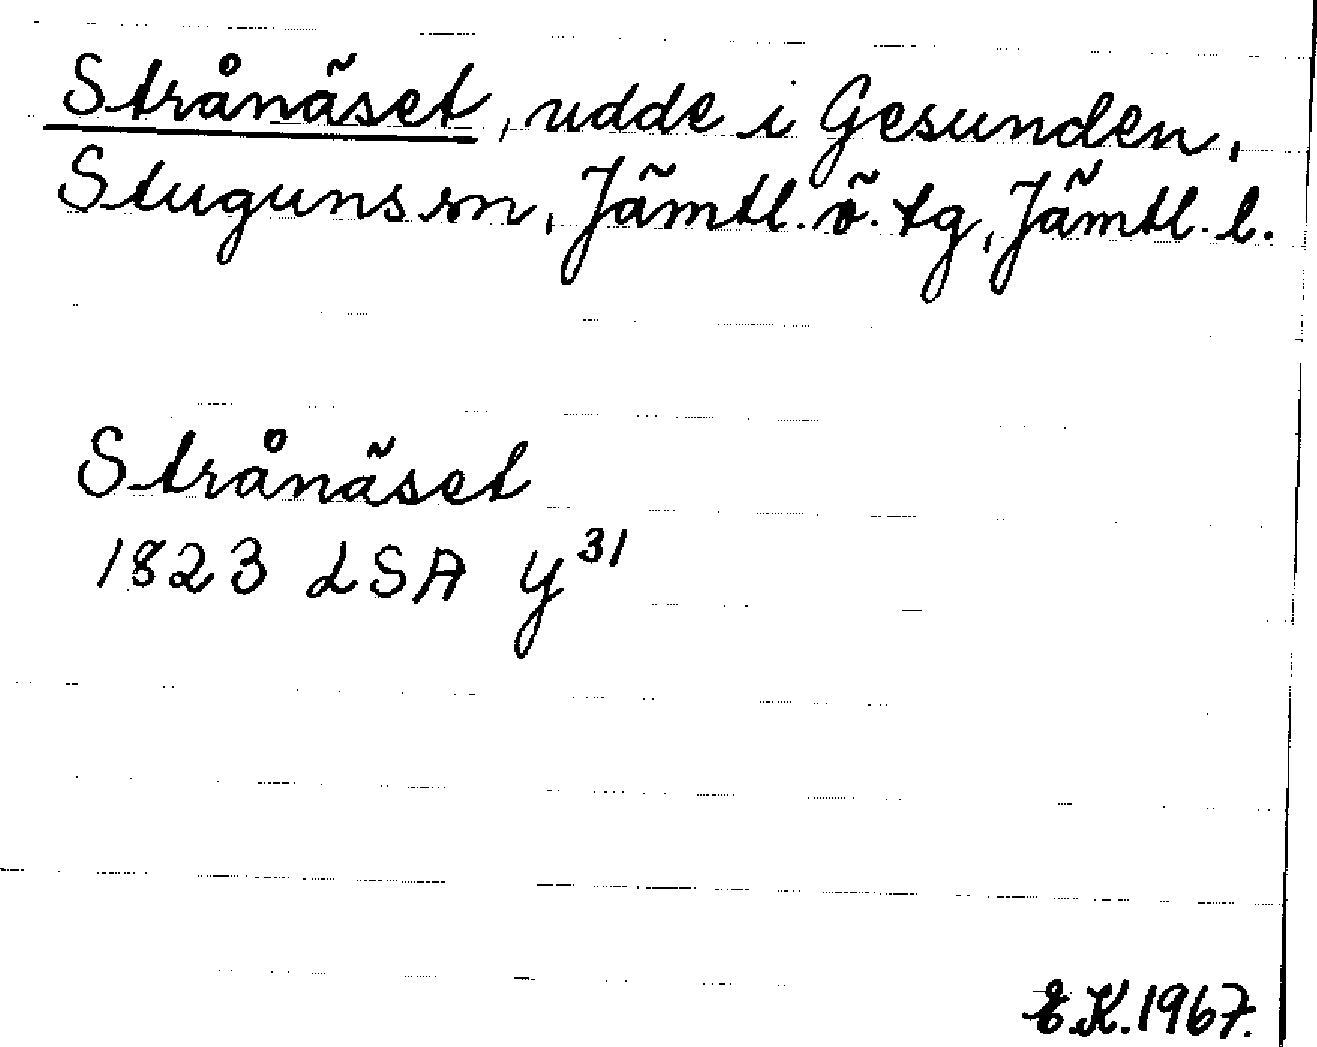 Strånäset, udde i Gesunden,
Stuguns sn, Jämtl. ö. tg, Jämtl. l.
Strånäset
1823 LSA Y³¹
E.K. 1967.